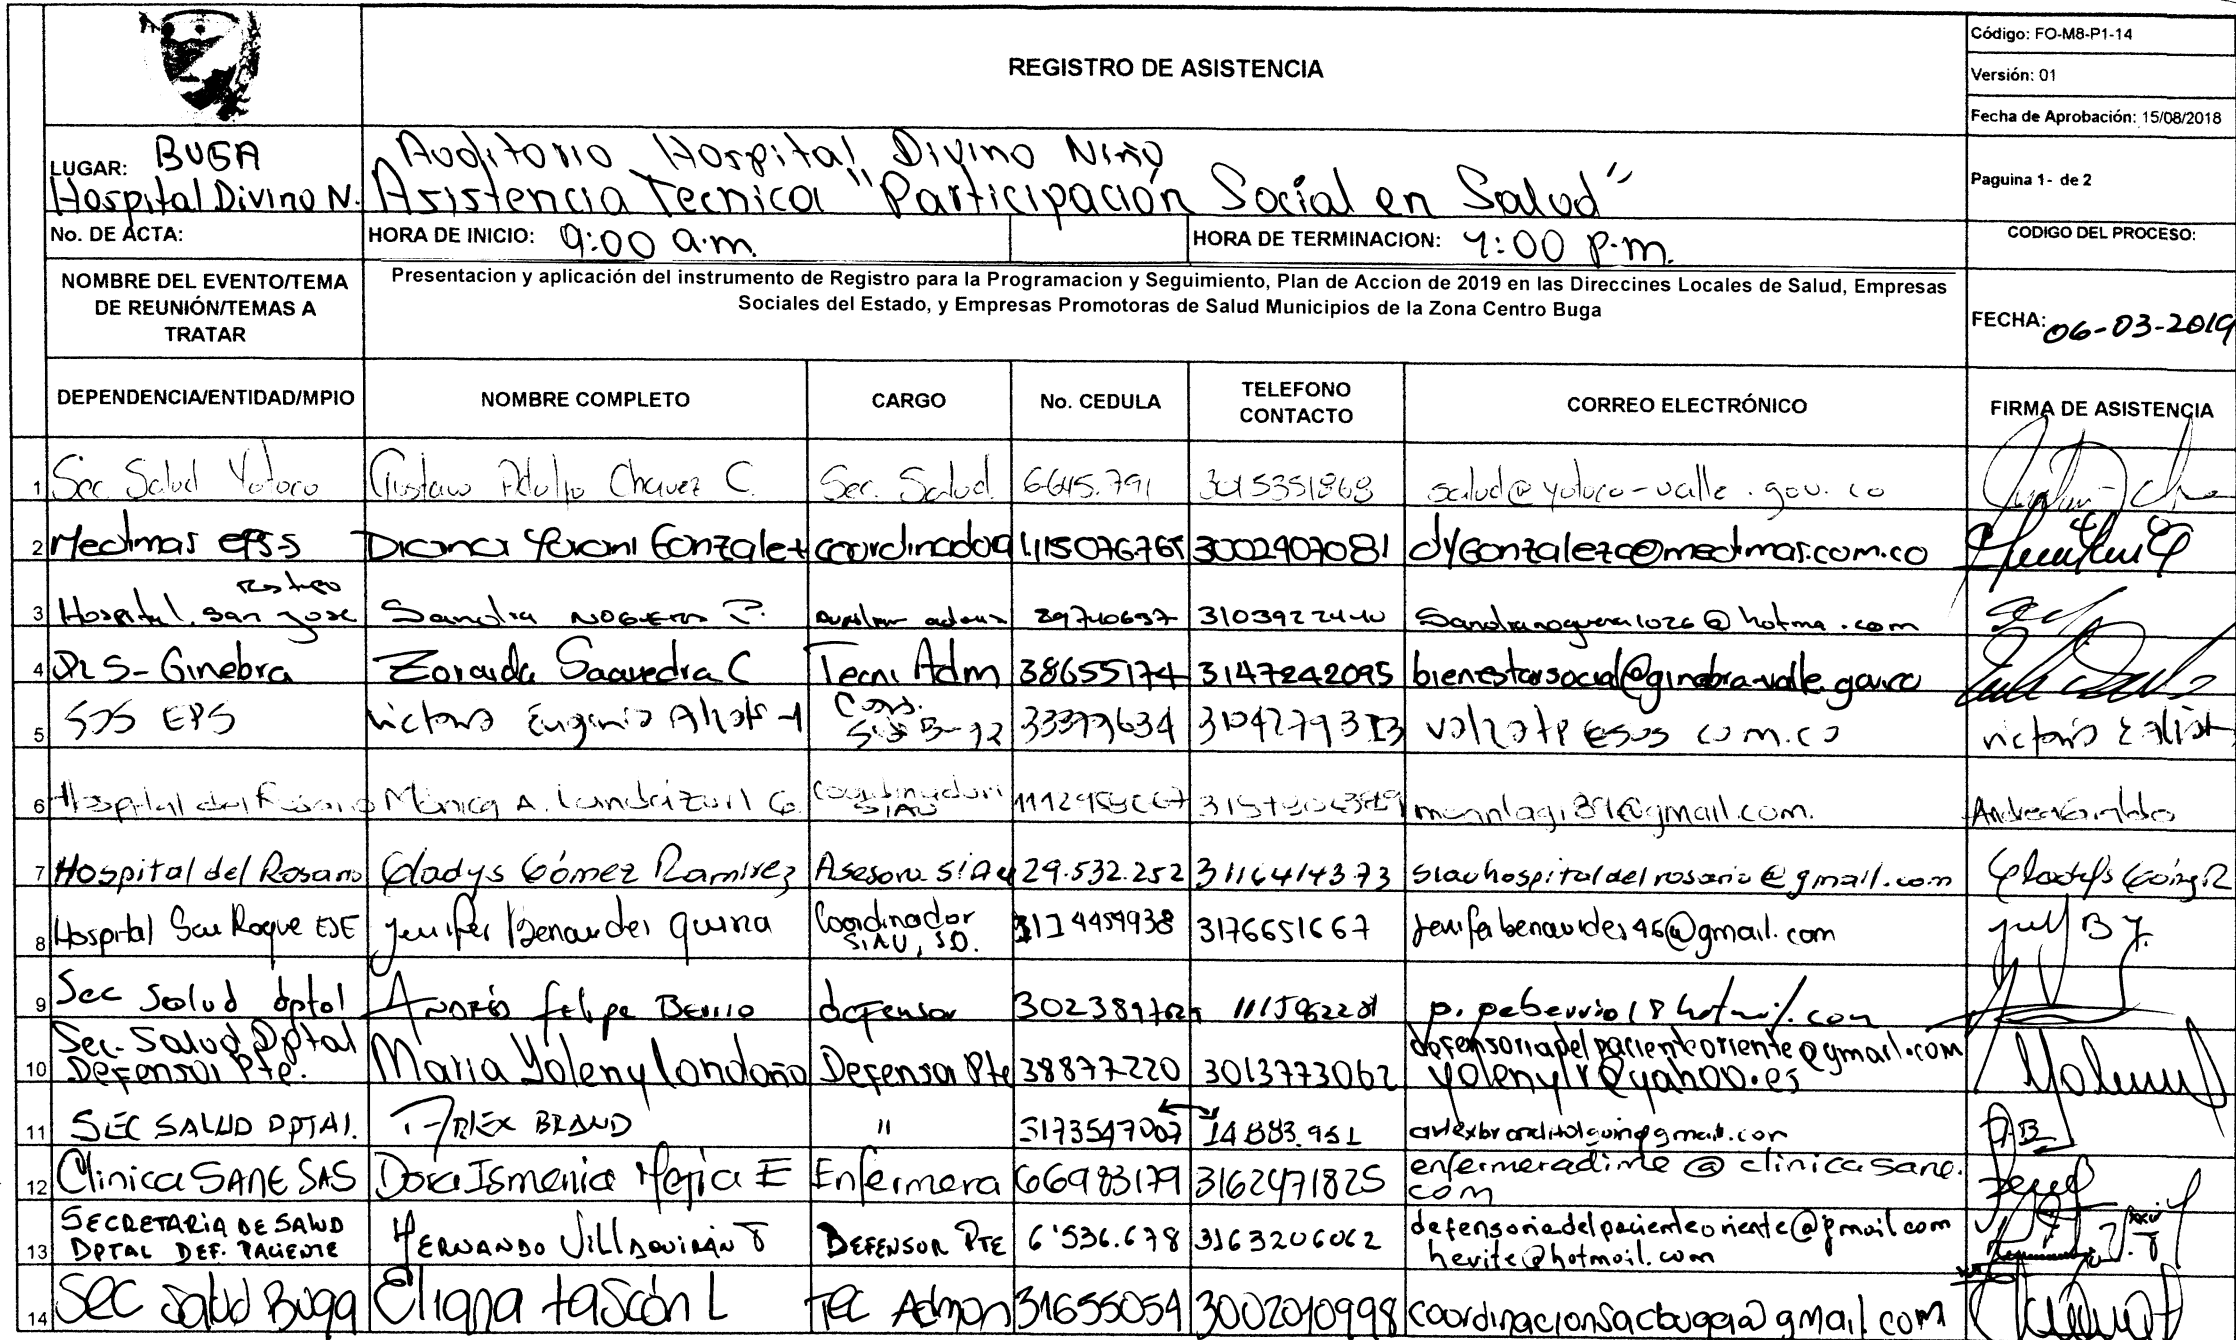 REGISTRO DE ASISTENCIA
Código: FO-M8-P1-14
Versión: 01
Fecha de Aprobación: 15/08/2018
Paguina 1- de 2
LUGAR: BUGA
Hospital Divino N.
Auditorio Hospital Divino Niño
Asistencia Tecnica "Participación Social en Salud"
No. DE ACTA:
HORA DE INICIO: 9:00 a.m.
HORA DE TERMINACION: 4:00 p.m.
CODIGO DEL PROCESO:
NOMBRE DEL EVENTO/TEMA
DE REUNIÓN/TEMAS A
TRATAR
Presentacion y aplicación del instrumento de Registro para la Programacion y Seguimiento, Plan de Accion de 2019 en las Direccines Locales de Salud, Empresas
Sociales del Estado, y Empresas Promotoras de Salud Municipios de la Zona Centro Buga
FECHA: 06-03-2019
DEPENDENCIA/ENTIDAD/MPIO NOMBRE COMPLETO CARGO No. CEDULA TELEFONO CONTACTO CORREO ELECTRÓNICO FIRMA DE ASISTENCIA
1 Sec Salud Yotoco Gustavo Adolfo Chavez C. Sec. Salud 6645.791 3015351868 salud@yotoco-valle.gov.co
2 Medimas EPS-S Diana Gonzalez coordinadora 1115076765 3002907081 dygonzalezc@medimas.com.co
3 Hospital San Jose Restrepo Sandra Noguera P. 29740697 3103922440 Sandranoguera1026@hotma.com
4 DLS-Ginebra Zoraida Saavedra C Tecni Adm 38655174 3147242095 bienestarsocial@ginebra-valle.gov.co
5 SOS EPS Victoria Eugenia
6 Hospital del Rosario Mónica A. Landazuri G. Coordinadora SIAU @gmail.com.
7 Hospital del Rosario Gladys Gómez Ramirez Asesora SIAU 29.532.252 3116414373 siauhospitaldelrosario@gmail.com Gladys Gómez R
8 Hospital San Roque ESE Jenifer Benavides Quina Coordinador SIAU, SO. 1114459938 3176651667 Jenifabenavides46@gmail.com
9 Sec Salud dptal Andrés Felipe Berrio defensor
10 Sec. Salud Dptal Defensor Pte. Maria Yoleny Londoño Defensor Pte 38877220 3013773062 defensoriadelpacienteoriente@gmail.com
yolenylr@yahoo.es
11 SEC SALUD DPTAL. ARLEX BRAND " 3173547007 14.883.951
12 Clinica SANE SAS Dora Ismenia Mejia E Enfermera 66983179 3162471825 enfermeradime@clinicasane.
com
13 SECRETARIA DE SALUD DPTAL DEF. PACIENTE HERNANDO VILLAQUIRÁN T DEFENSOR PTE 6'536.678 3163206062 defensoriadelpacienteoriente@gmail.com
hevite@hotmail.com
14 Sec Salud Buga Eliana Tascón L Tec Admon 31655054 3002010998 coordinacionsacbuga@gmail.com